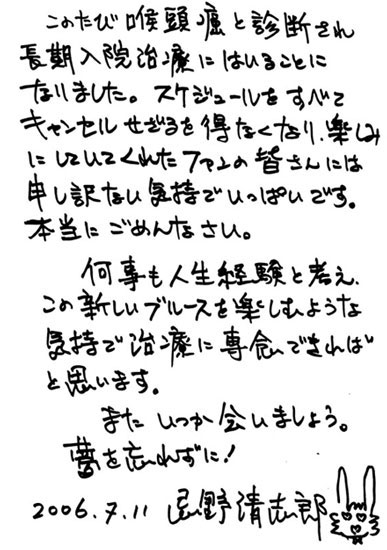 このたび喉頭癌と診断され
長期入院治療にはいることに
なりました。スケジュールをすべて
キャンセルせざるを得なくなり、楽しみ
にしていてくれたファンの皆さんには
申し訳ない気持でいっぱいです。
本当にごめんなさい。
何事も人生経験と考え、
この新しいブルースを楽しむような
気持で治療に専念できれば
と思います。
またいつか会いましょう。
夢を忘れずに!
2006.7.11 忌野清志郎